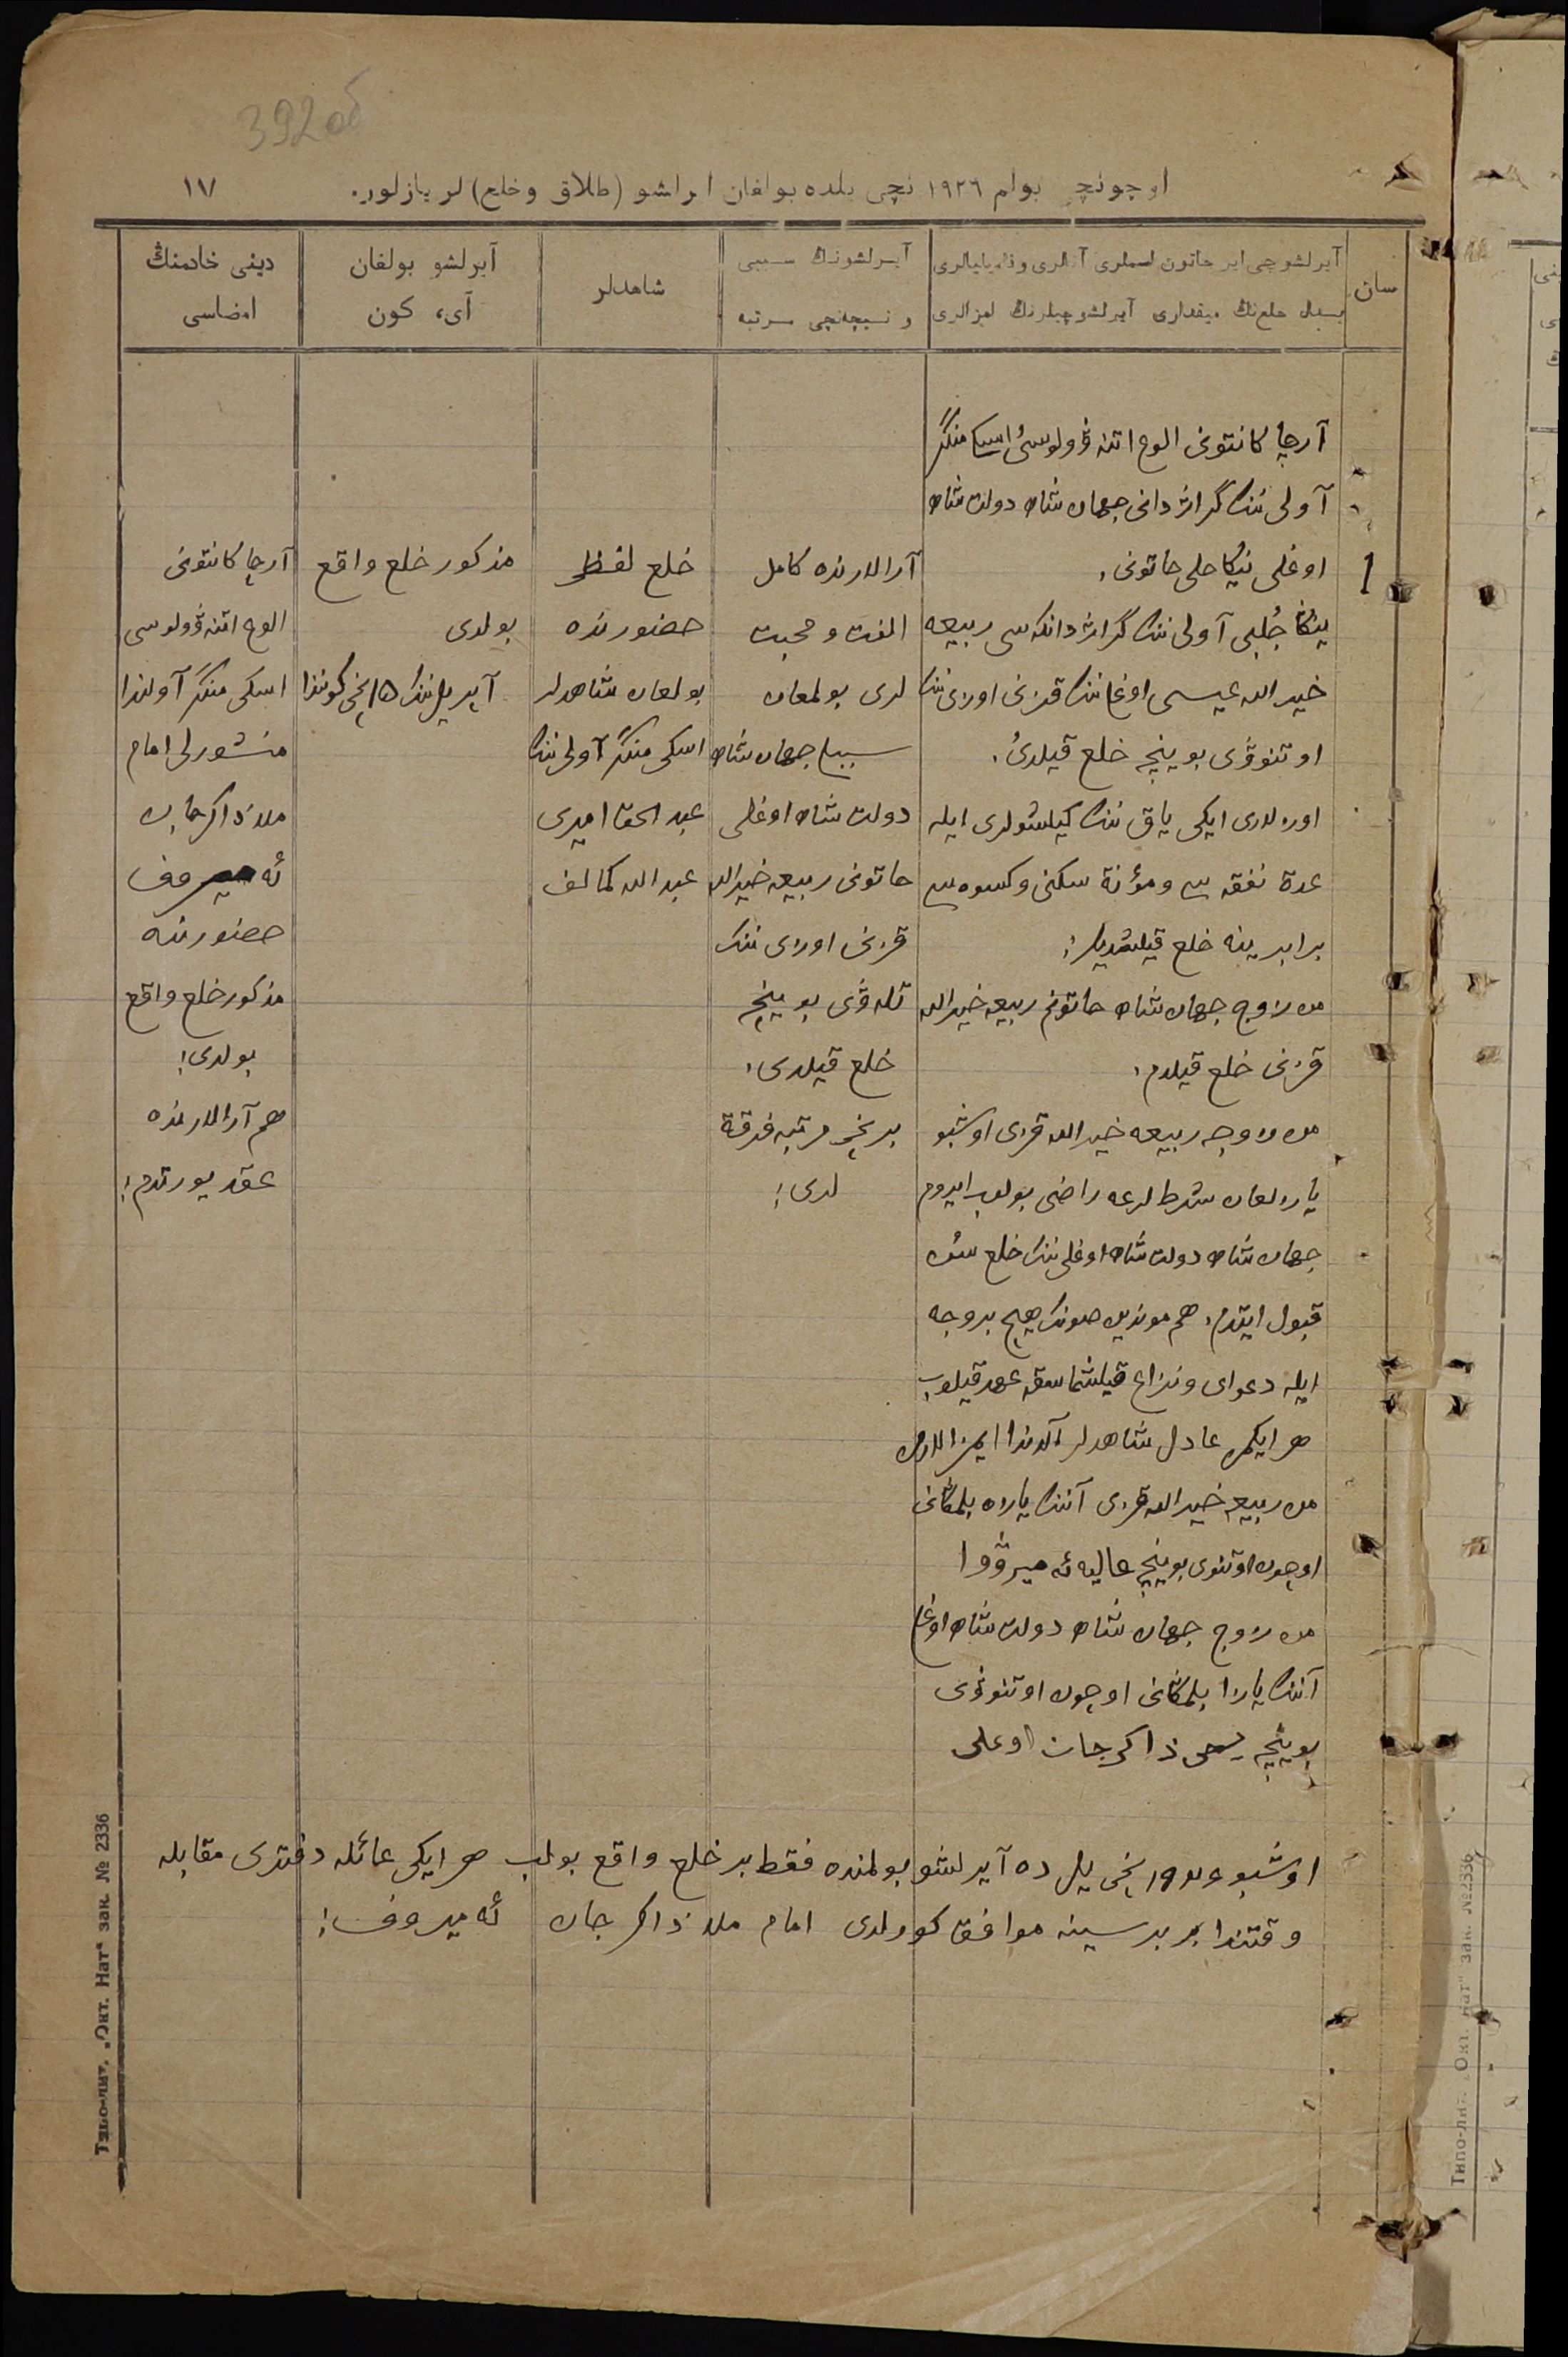 392 об
اوچونچی بولم ١٩٢٦ نچی یلده بولغان ایراشو (طلاق وخلع) لر یازلور.
١٧
سان
آیرلشوچی ایر خاتون اسملری آتالری وفامیلیالری
بدل خلع نڭ میقداری آیرلشوچیلرنڭ ایمزالری
آیرلشونڭ سببی
و نیچه‌نچی مرتبه
شاهدلر
آیرلشو بولغان
آی، کون
دینی خادمنڭ
امضاسی
1
آرچا کانتونی الوغ اتنه ڤولوسی اسکی منگر
آولی ننک گراژدانی جهان شاه دولت شاه
اوغلی نیکاحلی خاتونی،
ینگا جلبی آولی ننک گراژدانکه سی ربیعه
خیرالله عیسی اوغلی ننک قزنی اوزی ننک
اوتنوڤی بوینچه خلع قیلدی.
اوزلری ایکی یاق ننک کیلشولری ایله
عدة نفقه سی ومؤنة سکنی وکسوه سی
برابرینه خلع قیلشدیلر؛
من زوج جهان شاه خاتونم ربیعه خیرالله
قزنی خلع قیلدم،
من زوجه ربیعه خیرالله قزی اوشبو
یازلغان شرطلرغه راضی بولوب ایروم
جهان شاه دولت شاه اوغلی ننک خلع سنی
قبول ایتدم، هم موندین صونک هیچ بر وجه
ایله دعوای ونزاع قیلشماسقه عهد قیلوب
هر ایکمز عادل شاهدلر آلدندا ایمزالارمز
من ربیعه خیرالله قزی آننک یازه بلمگانی
اوچون اوتنوی بوینچه عالیه ئه میرۋوا
من زوج جهان شاه دولت شاه اوغلی
آننک یازا بلمگانی اوچون اوتنوڤی
بوینچه ذاکرجان اوغلی
آرالارنده کامل
الفت ومحبت
لری بولمغان
سببلی جهان شاه
دولت شاه اوغلی
خاتونی ربیعه خیرالله
قزنی اوزی ننک
تله ڤی بوینچه
خلع قیلدی،
برنچی مرتبه فرقة
لری؛
خلع لفظی
حضورنده
بولغان شاهدلر
اسکی منگر آولی ننک
عبدالحق امیری
عبدالله کمالف
مذکور خلع واقع
بولدی
آپریل ننک ١٥ نچی کونندا
آرچا کانتونی
الوغ اتنه ڤولوسی
اسکی منگر آولندا
منشورلی امام
ملا ذاکرجان
ئه میروف
حضورنده
مذکور خلع واقع
بولدی؛
هم آرالارنده
عقد یورتدم؛
اوشبو ١٩٢٦ نچی یل ده آیرلشو بولمنده فقط بر خلع واقع بولب هر ایکی عائله دفتری مقابله
وقتندا بر برسینه موافق کورلدی امام ملا ذاکرجان ئه میروف؛
Типо-лит. „Окт. Нат“ зак. № 2336
Типо-лит. „Окт. Нат“ зак. № 2336